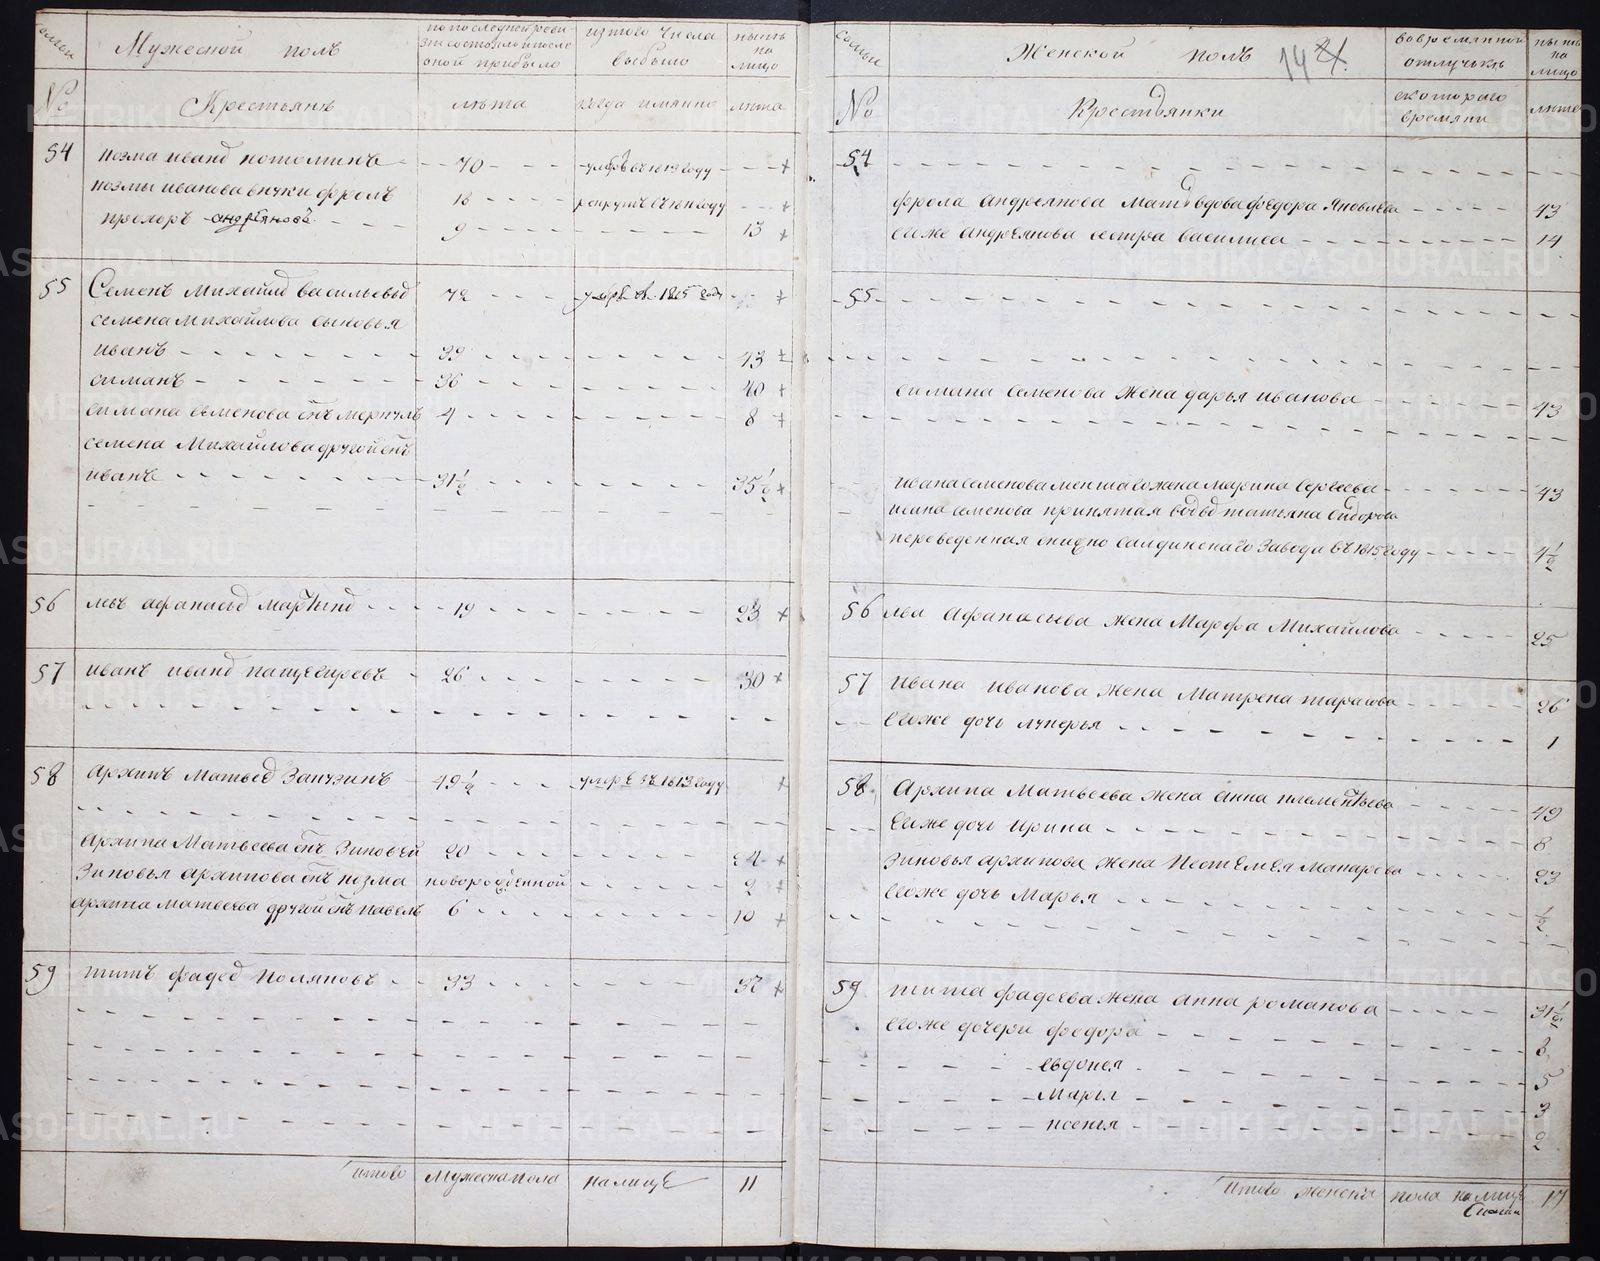 семьи
Мужеской полъ
по последней реви
зіи состояло и после
оной прибыло
изтого числа
выбыло
нынъ
на
лицо
No
Крестьянъ
лѣта
когда имянно
лѣта
54
козма иванд потоминъ 70 умре въ 1813 году
козмы иванова внуки фролъ 18 рекрутъ въ 1811 году
прохоръ андрѣяновъ 9 13
55
Семенъ михайлд васильевыд 72 умре въ 1815 году
семена михайлова сыновья
иванъ 39 43
симанъ 36 40
симана семенова снъ меркулъ 4 8
семена Михайлова другой снъ
иванъ 31½ 35½
56 левъ афанасьд мартынд 19 23
57 иванъ иванд кащегировъ 26 30
58 архипъ матвед Заичэинъ 49½ умре въ 1813 году
архипа Матвеева снъ Зиновей 20 24
Зиновья архипова снъ козма новорожденной 2
архипа матвеева другой снъ павелъ 6 10
59 титъ фадед поляковъ 33 37
Итово мужеска пола налице 11
семьи
Женской полъ
14
вовремянной
отлучькѣ
нынѣ
на
лицо
No
Крестьянки
скоторого
времяни
лѣта
54
фрола андреянова мать вдова федора яковлева 43
евоже андреянова сестра василиса 14
55
симана семенова жена дарья иванова 43
ивана семенова меншаго жена марина сергеева 43
перебеденная с нижно салдинскаго завода въ 1815 году 4½
56 лва афанасьева жена Марфа Михайлова 25
57 ивана иванова жена матрена тарасова 26
евоже дочь лукерья 1
58 Архипа матвеева жена анна климентьева 49
евоже дочь ирина 8
зиновья архипова жена пестемея макарова 23
евоже дочь Марья ½
59 тита фадеева жена анна романова 31½
евоже дочери федора 8
евдокея 5
марья 3
ксенья 2
Итово женска пола налице 17
METRIKI.GASO-URAL.RU